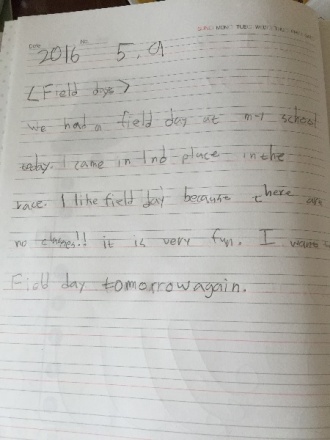 Date No. SUN MON TUE WED
2016 5. 9
<Field days>
We had a field day at my school
today. I came in 2nd place in the
race. I like field day because there are
no classes!! it is very fun. I
Field day tomorrow again.